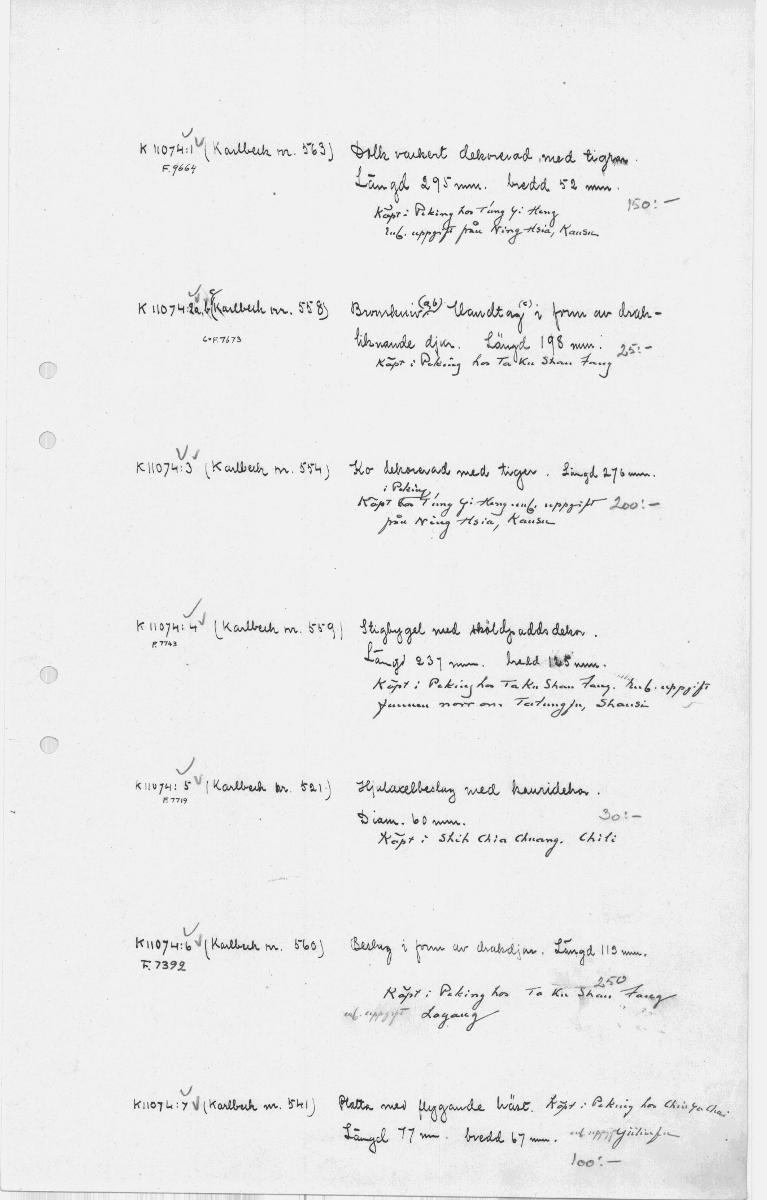 K 11074:1 (Karlbeck nr. 563) Dolk vackert dekorerad med tigrar.
F. 9664
Längd 295 mm. bredd 52 mm.
150:-
Köpt i Peking hos T'ung Yi Heng
enl. uppgift från Ning Hsia, Kansu
K 11074:2a,b,c (Karlbeck nr. 558) Bronskniv (a,b) Handtag (c) i form av drak-
b = F. 7673
liknande djur. Längd 198 mm. 25:-
Köpt i Peking hos Ta Ku Shan Fang
K 11074:3 (Karlbeck nr. 554) Ko dekorerad med tiger. Längd 276 mm.
i Peking
Köpt hos T'ung Yi Heng enl. uppgift 200:-
från Ning Hsia, Kansu
K 11074:4 (Karlbeck nr. 559) Stigbygel med sköldpaddsdekor.
F. 7743
Längd 237 mm. bredd 125 mm.
Köpt i Peking hos Ta Ku Shan Fang. Enl. uppgift
funnen norr om Tatungfu, Shansi
K 11074:5 (Karlbeck nr. 521) Hjulaxelbeslag med kauridekor.
F. 7719
Diam. 60 mm. 30:-
Köpt i Shih Chia Chuang. Chili
K 11074:6 (Karlbeck nr. 560) Beslag i form av drakdjur. Längd 113 mm.
F. 7392
250
Köpt i Peking hos Ta Ku Shan Fang
enl. uppgift Loyang
K 11074:7 (Karlbeck nr. 541) Platta med flygande häst. Köpt i Peking hos
Längd 77 mm. bredd 67 mm. enl. uppgift Yülinfu
100:-